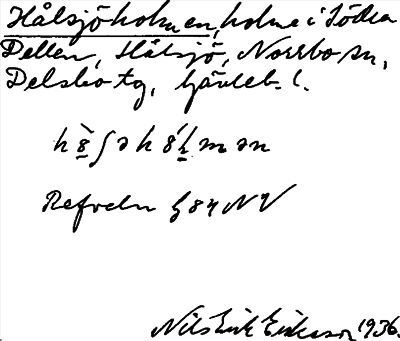 Hålsjöholmen, holme i Södra
Dellen, Hålsjö, Norrbo sn,
Delsbo tg, Gävleb. l.
Refveln 984 NV
Nils Erik Eriksson 1936.